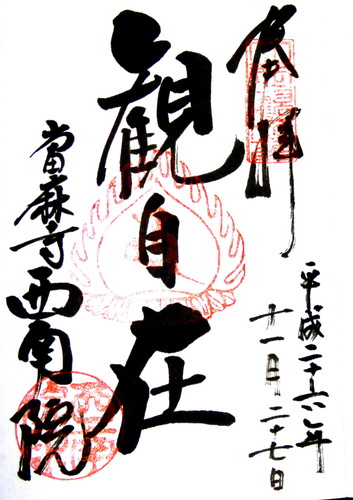 奉拝
平成二十六年
十一月二十七日
観自在
當麻寺西南院